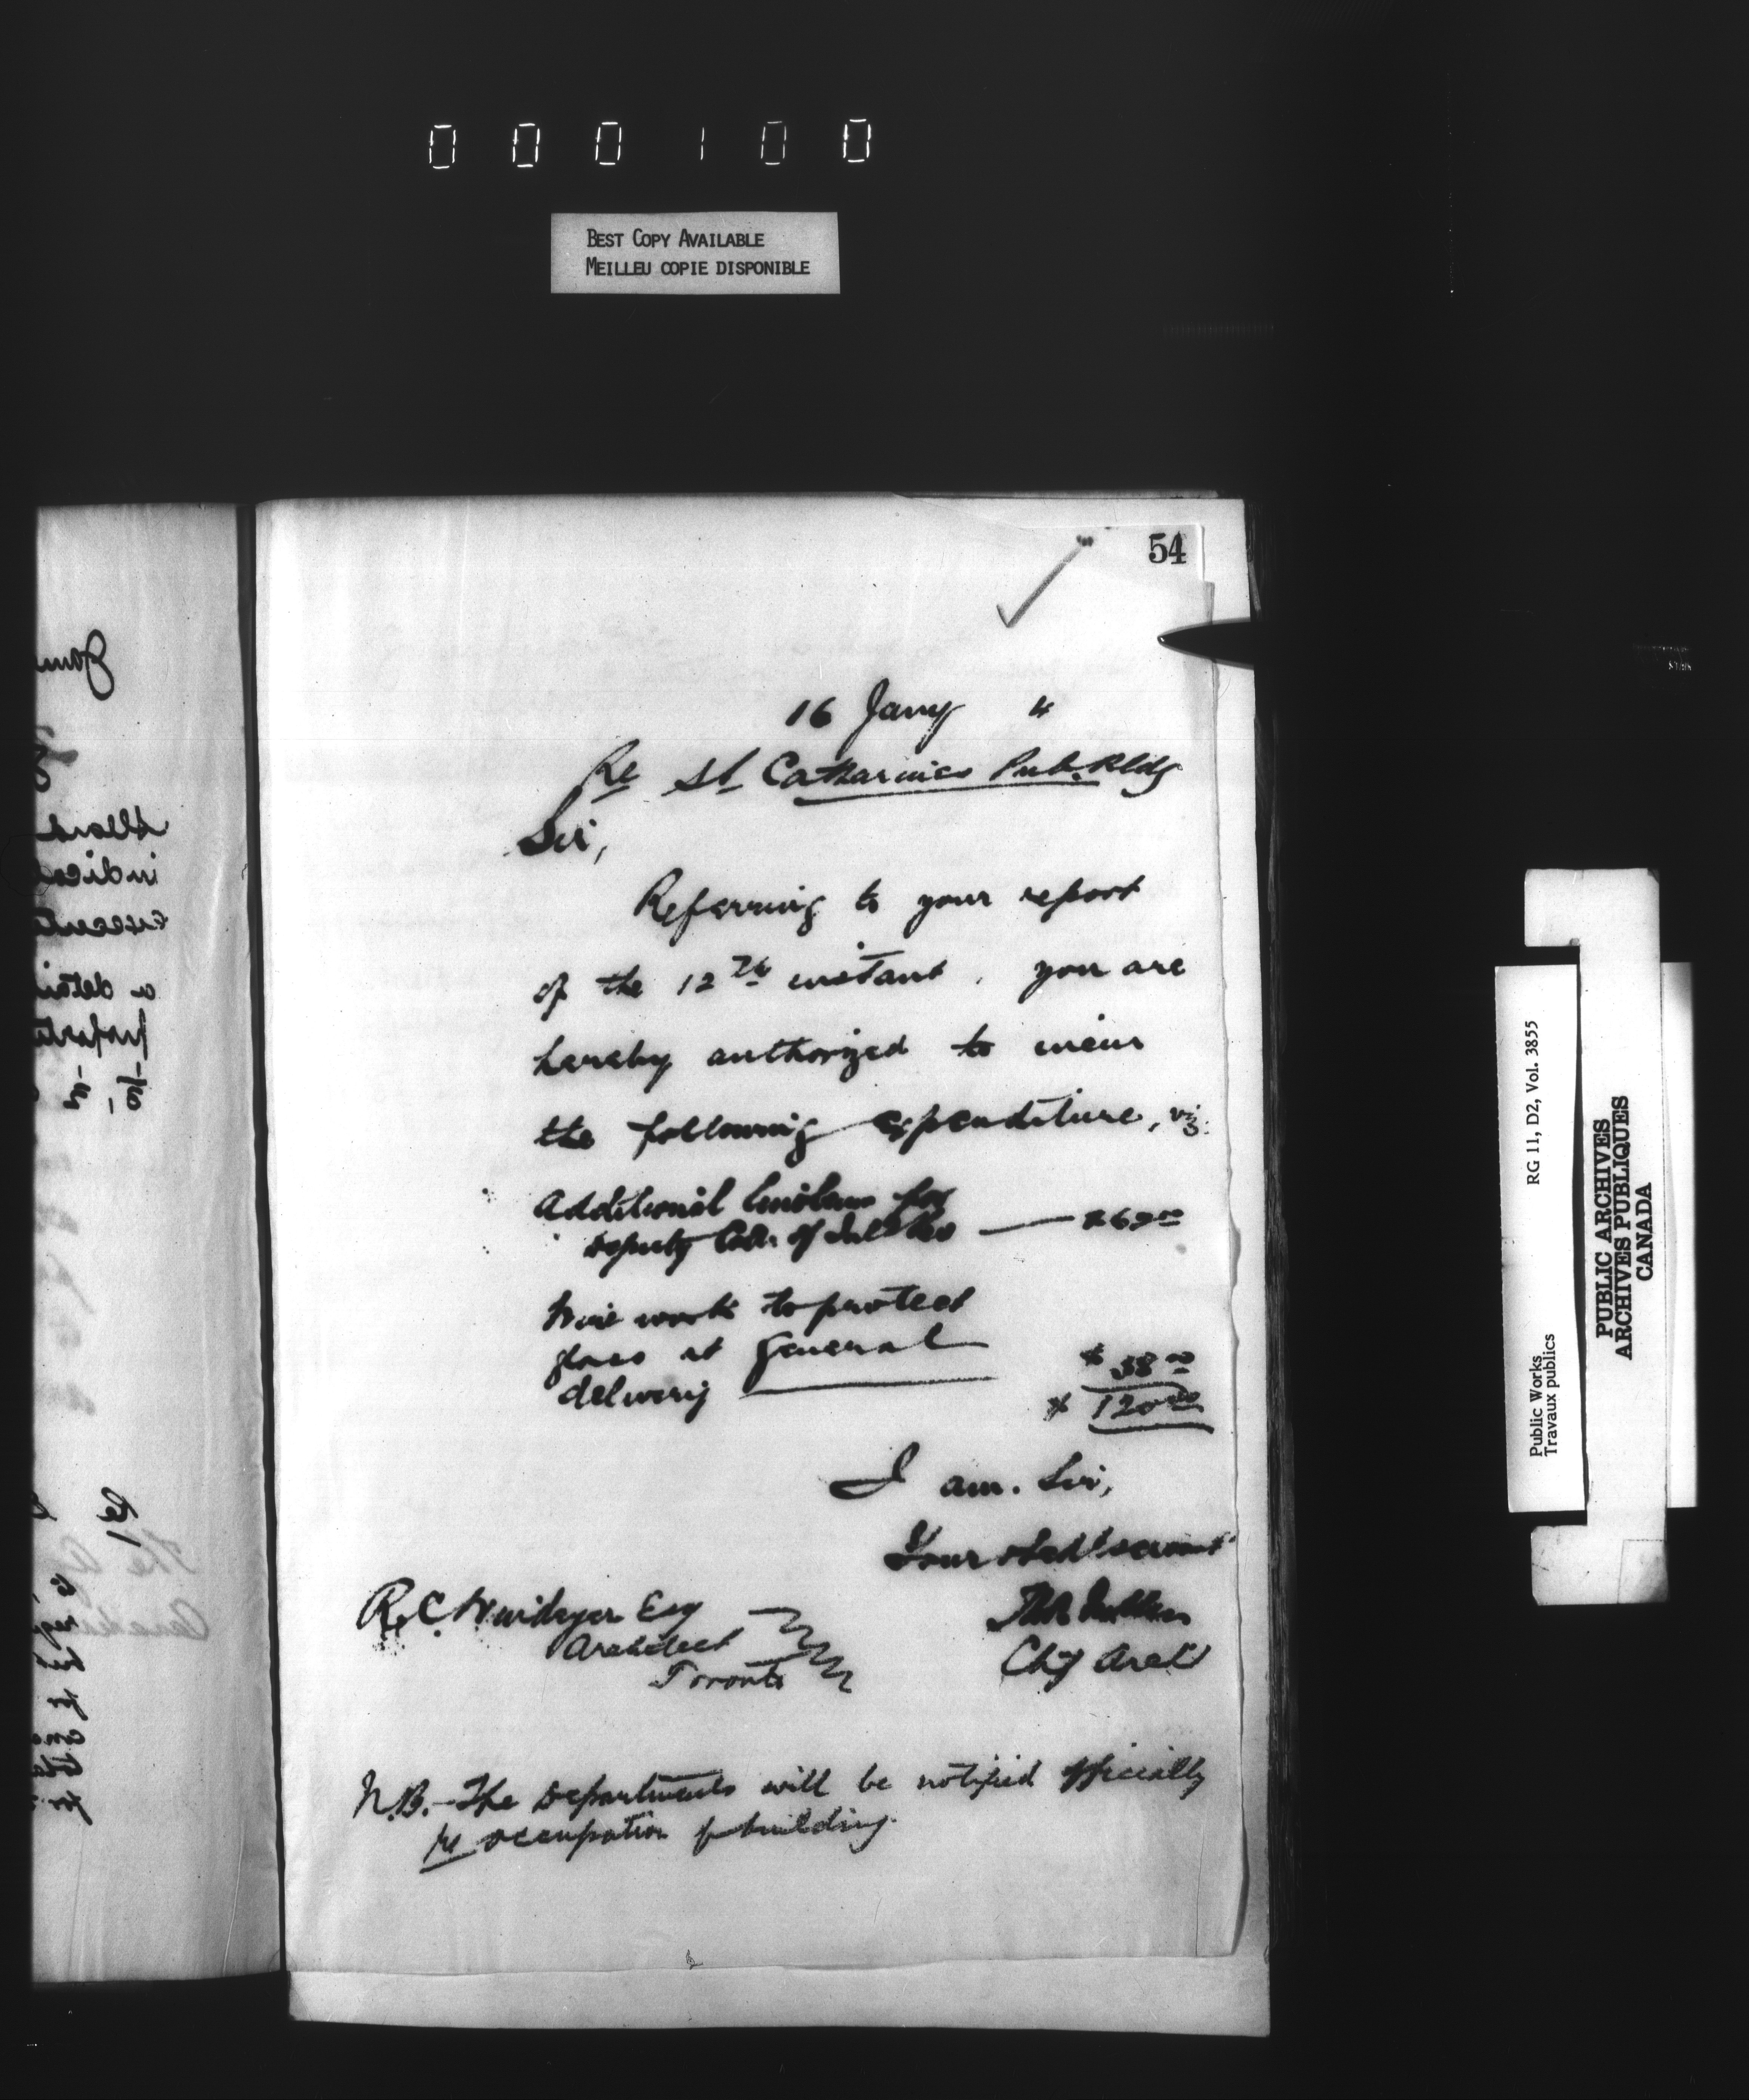 000100
BEST COPY AVAILABLE
MEILLEU COPIE DISPONIBLE
54
16 Jany "
Re St Catharines Pub. Bldg
Sir,
Referring to your report
of the 12th instant, you are
hereby authorized to incur
the following expenditure, viz:
Additional linoleum for
Deputy Coll. of Inl.
Wire work to protect
glass at General
delivery
$ 120.00
I am. Sir,
Your obedt servant
Chf Arct
R. C. Windeyer Esq
Architect
Toronto
N.B.- The Departments will be notified officially
re occupation of building.
RG 11, D2, Vol. 3855
Public Works
Travaux publics
PUBLIC ARCHIVES
ARCHIVES PUBLIQUES
CANADA